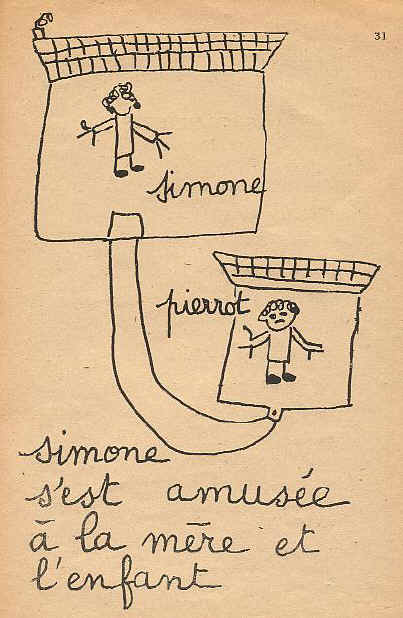 31
simone
pierrot
simone
s'est amusée
à la mère et
l'enfant